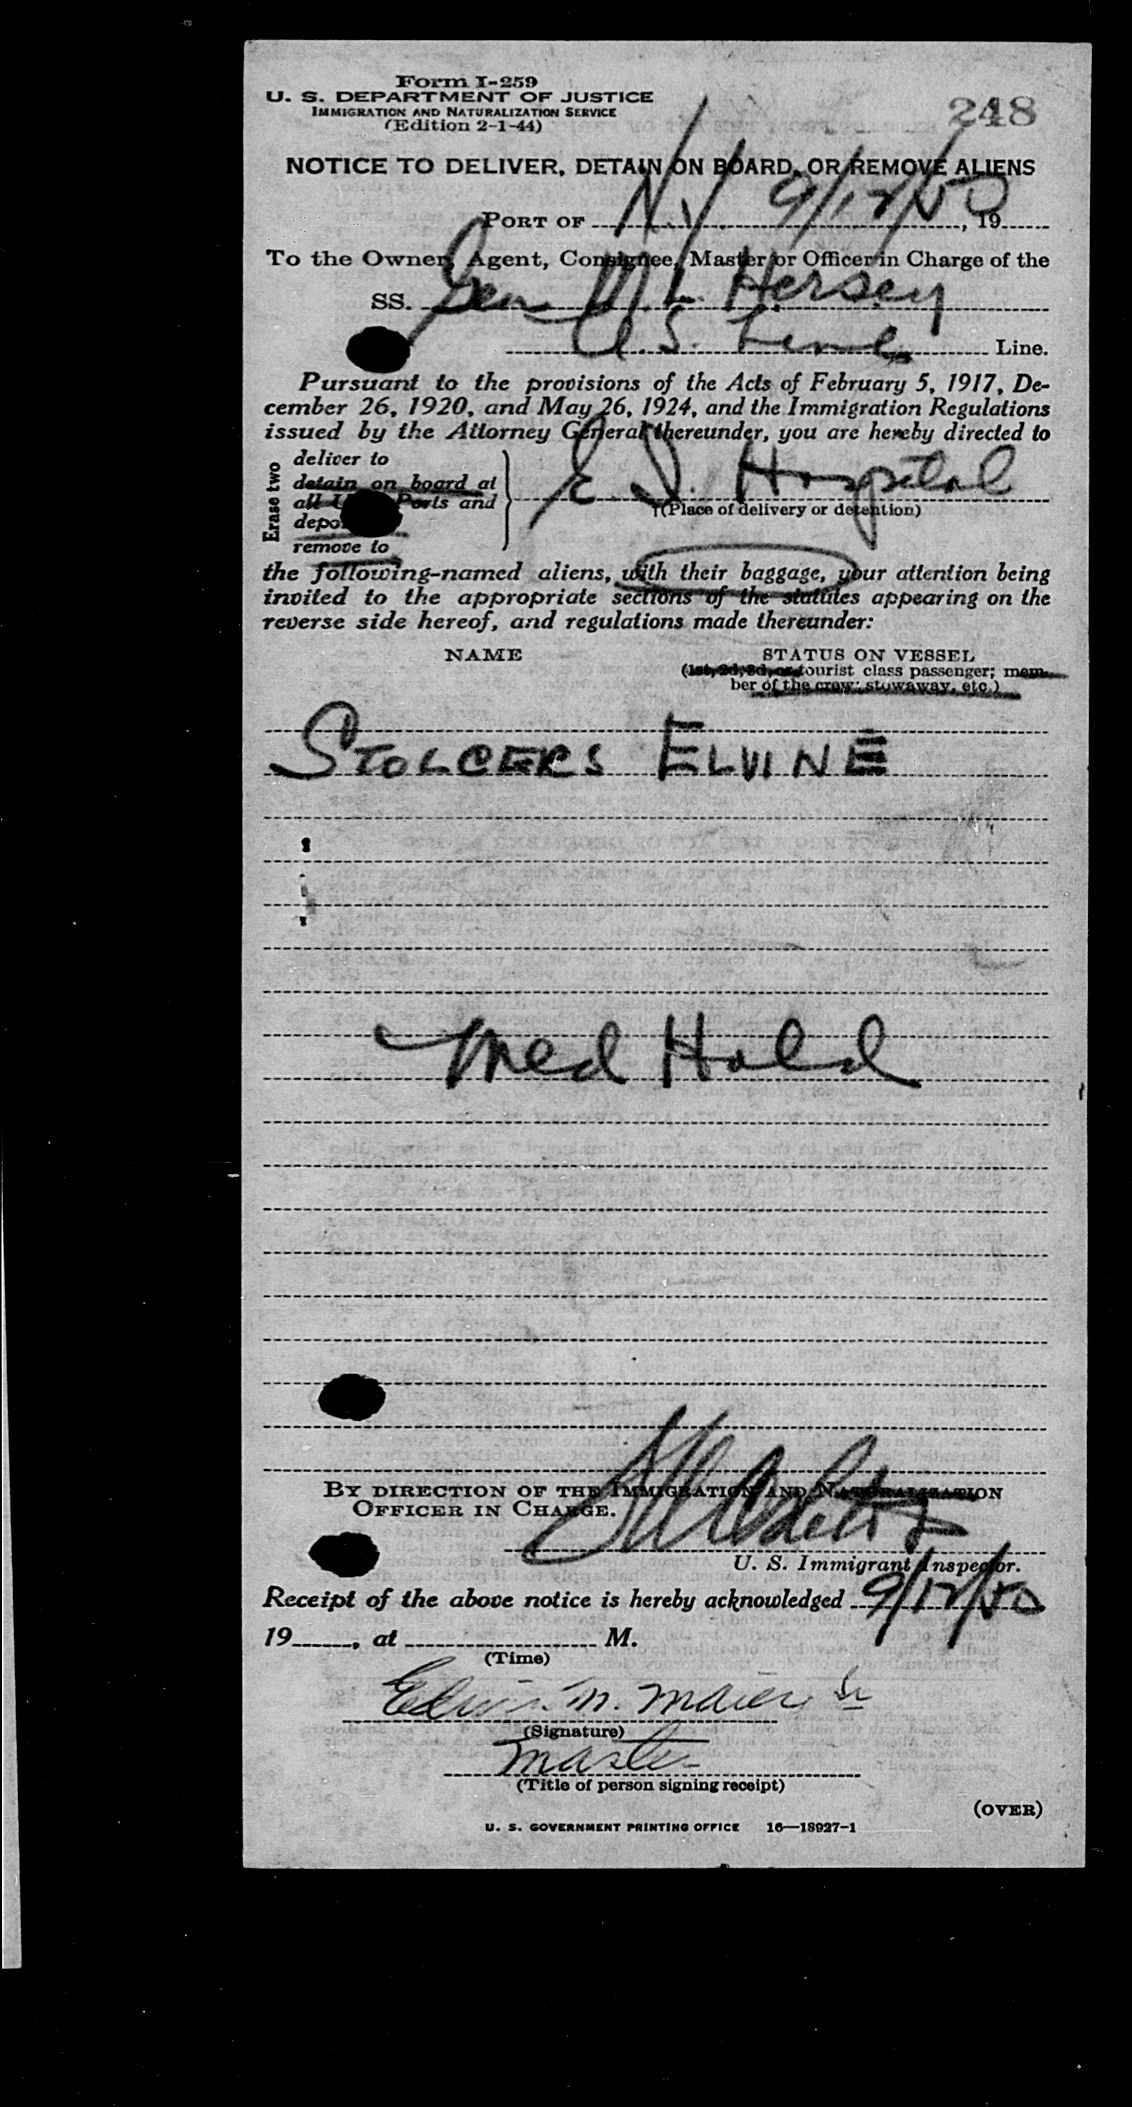 Form I-259
U. S. DEPARTMENT OF JUSTICE
IMMIGRATION AND NATURALIZATION SERVICE
(Edition 2-1-44)
248
NOTICE TO DELIVER, DETAIN ON BOARD, OR REMOVE ALIENS
PORT OF N.Y. 9/12/50, 19
To the Owner, Agent, Consignee, Master or Officer in Charge of the
SS. Gen M. L. Hersey
U.S. Lines Line.
Pursuant to the provisions of the Acts of February 5, 1917, De-
cember 26, 1920, and May 26, 1924, and the Immigration Regulations
issued by the Attorney General thereunder, you are hereby directed to
Erase two
deliver to
detain on board at
all Ports and
remove to
E. I. Hospital
(Place of delivery or detention)
the following-named aliens, with their baggage, your attention being
invited to the appropriate sections of the statutes appearing on the
reverse side hereof, and regulations made thereunder:
NAME
STATUS ON VESSEL
(1st, 2d, 3d, or tourist class passenger; mem-
ber of the crew; stowaway, etc.)
STOLCERS ELVINE
Med Hold
BY DIRECTION OF THE IMMIGRATION AND NATURALIZATION
OFFICER IN CHARGE.
U. S. Immigrant Inspector.
Receipt of the above notice is hereby acknowledged 9/12/50
19, at M.
(Time)
Edwin M. Maier Jr
(Signature)
Master
(Title of person signing receipt)
(OVER)
U. S. GOVERNMENT PRINTING OFFICE 16—18927-1